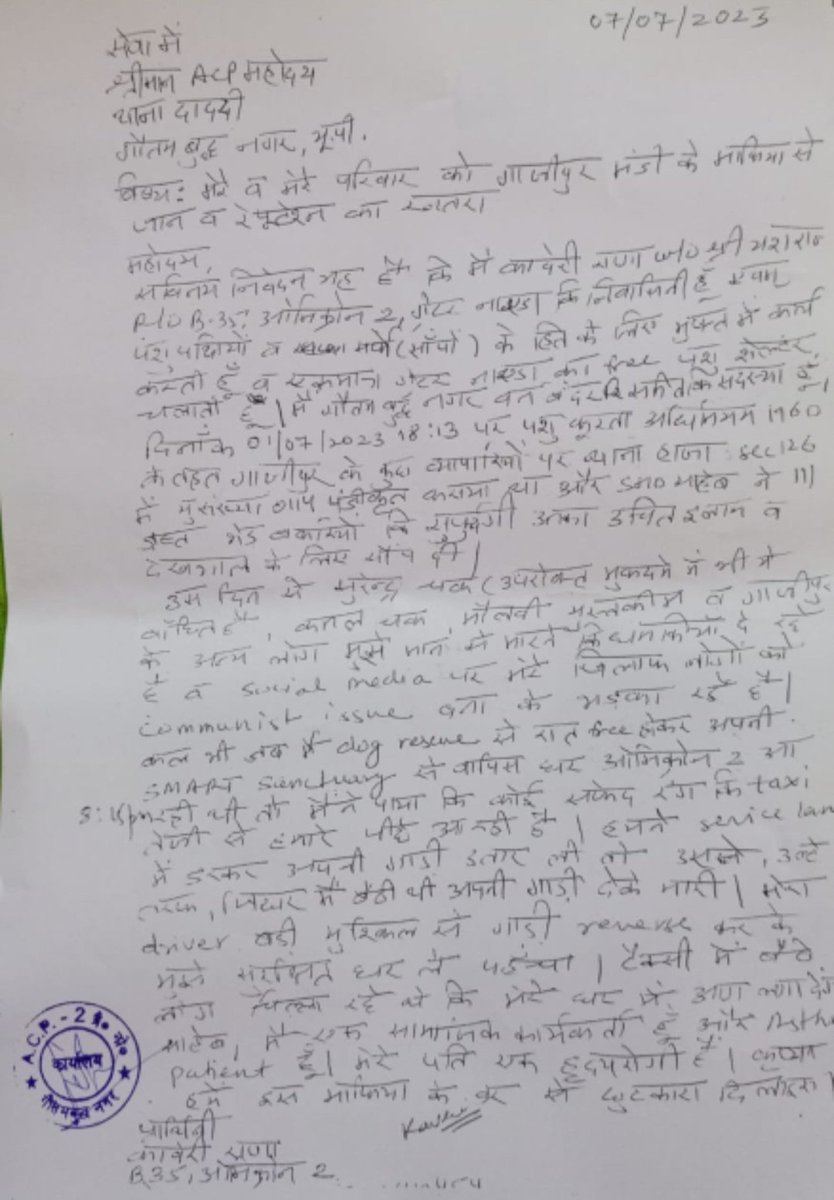 07/07/2023
सेवा में
श्रीमान ACP महोदय
थाना दादरी
गौतम बुद्ध नगर, यू.पी.
विषय: मेरे व मेरे परिवार को गाजीपुर मंडी के माफिया से
जान व रेपुटेशन का खतरा।
महोदय,
सविनय निवेदन यह है कि मैं कावेरी राणा w/o श्री यशराज
R/O B-35, ओमिक्रोन 2, ग्रेटर नोएडा कि निवासिनी हूँ एवम्
पशु पक्षियों व सर्पो (साँपों) के हित के लिए मुफ्त में कार्य
करती हूँ व एकमात्र ग्रेटर नोएडा का free पशु शेल्टर
चलाती हूँ। मैं गौतम बुद्ध नगर वन बंदर समिति कि सदस्या हूँ।
दिनाँक 01/07/2023 18:13 पर पशु क्रूरता अधिनियम 1960
के तहत गाजीपुर के कुछ व्यापारियों पर थाना हाजा sec 126
में मु.संख्या पंजीकृत कराया था और SHO साहेब ने 111
भेड बकरियों कि सुपुर्दगी उनका उचित इलाज व
देखभाल के लिए सौंप दी।
उस दिन से सुरेन्द्र चक (उपरोक्त मुकदमे में भी ये
वांछित है, चक, मौलवी मुस्तकीम व गाजीपुर
के अन्य लोग मुझे जान से मारने कि धमकीयाँ दे रहे
है व social media पर मेरे खिलाफ लोगों को
communist issue बता के भड़का रहे है।
कल भी जब मैं dog rescue से रात free होकर अपनी
SMART Sanctuary से वापिस घर ओमिक्रोन 2 आ
8:15pm रही थी तो मैने पाया कि कोई सफेद रंग कि taxi
तेजी से हमारे पीछे आ रही है। हमने service lane
में डरकर अपनी गाडी उतार ली तो उसने, उल्टे
तरफ, जिधर मैं बैठी थी अपनी गाड़ी ठोक मारी। मेरा
driver बडी मुश्किल से गाडी reverse कर के
मुझे सुरक्षित घर ले पहुंचा। टैक्सी में बैठे
लोग चिल्ला रहे थे कि मेरे घर में आग लगा देंगे
साहेब, मैं एक सामाजिक कार्यकर्ता हूँ और Asthma
patient हूँ। मेरे पति एक हृदयरोगी हैं। कृप्या
हमें इस माफिया के डर से छुटकारा दिलाइए।
प्रार्थिनी
कावेरी राणा
B35, ओमिक्रोन 2
A.C.P. - 2
कार्यालय
गौतमबुद्ध नगर